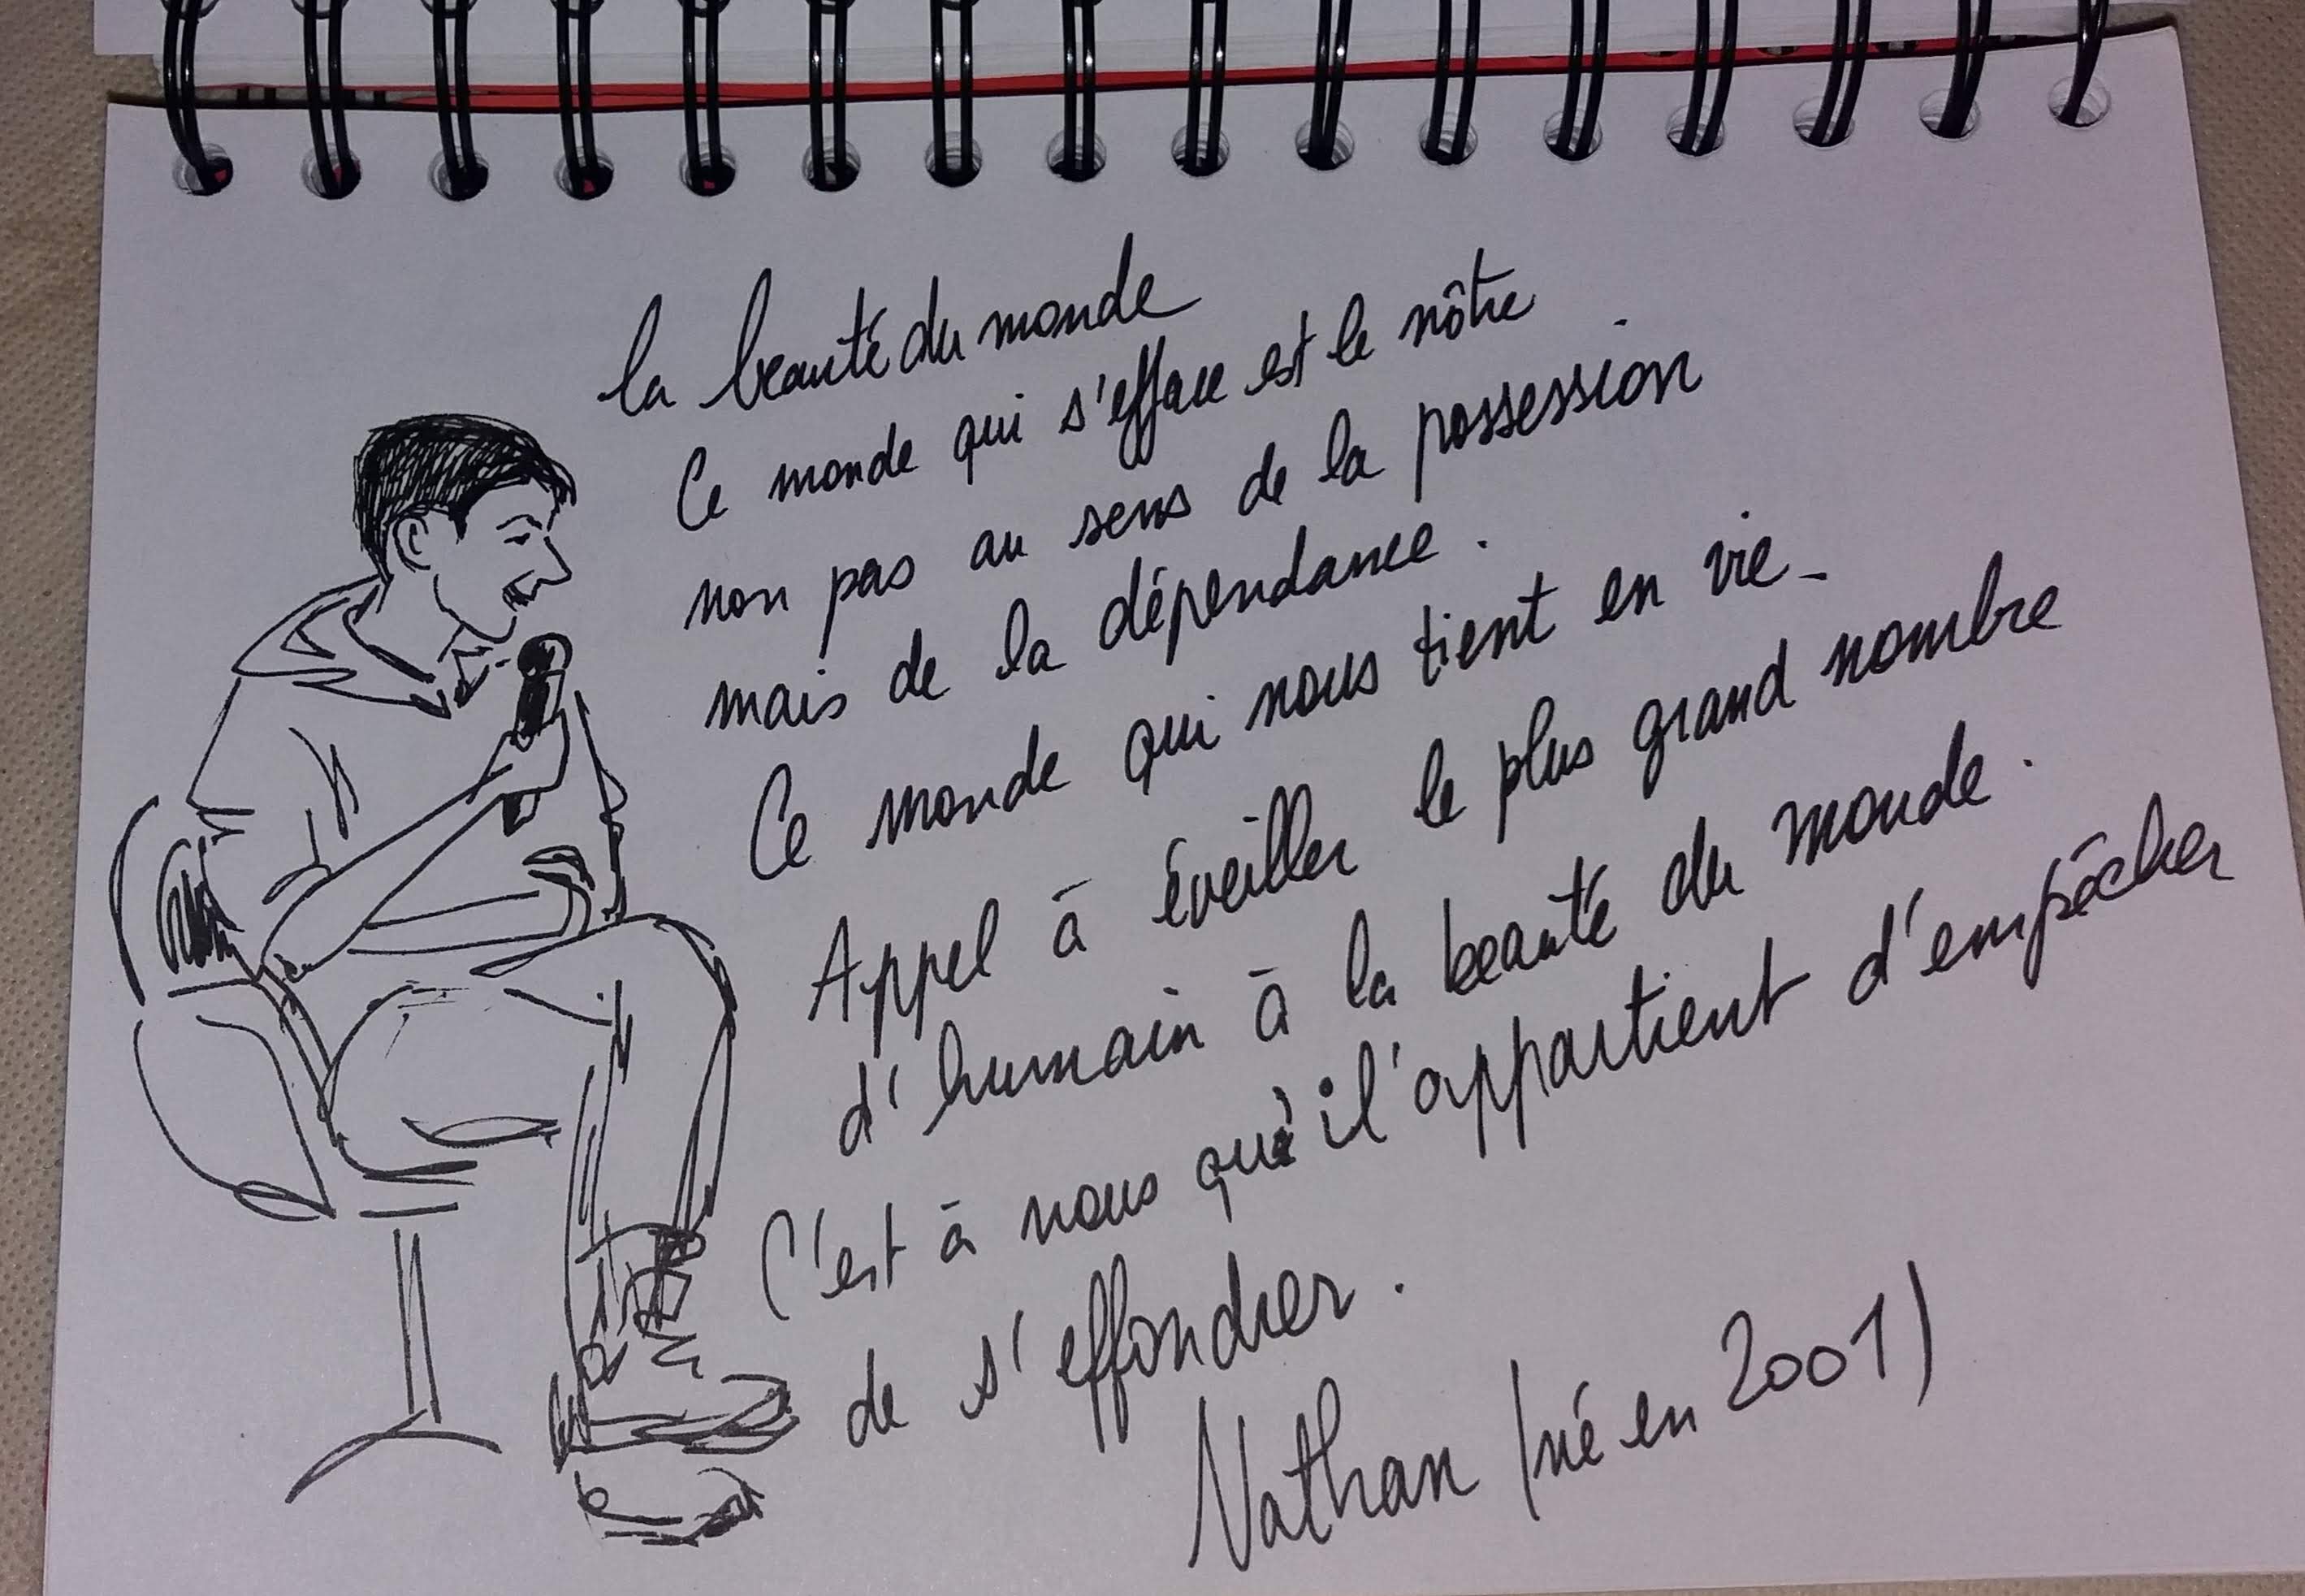 la beauté du monde
Ce monde qui s'efface est le nôtre
non pas au sens de la possession
mais de la dépendance.
Ce monde qui nous tient en vie_
Appel à éveiller le plus grand nombre
d'humain à la beauté du monde.
C'est à nous qu'il l'appartient d'empêcher
de s'effondrer.
Nathan (né en 2001)